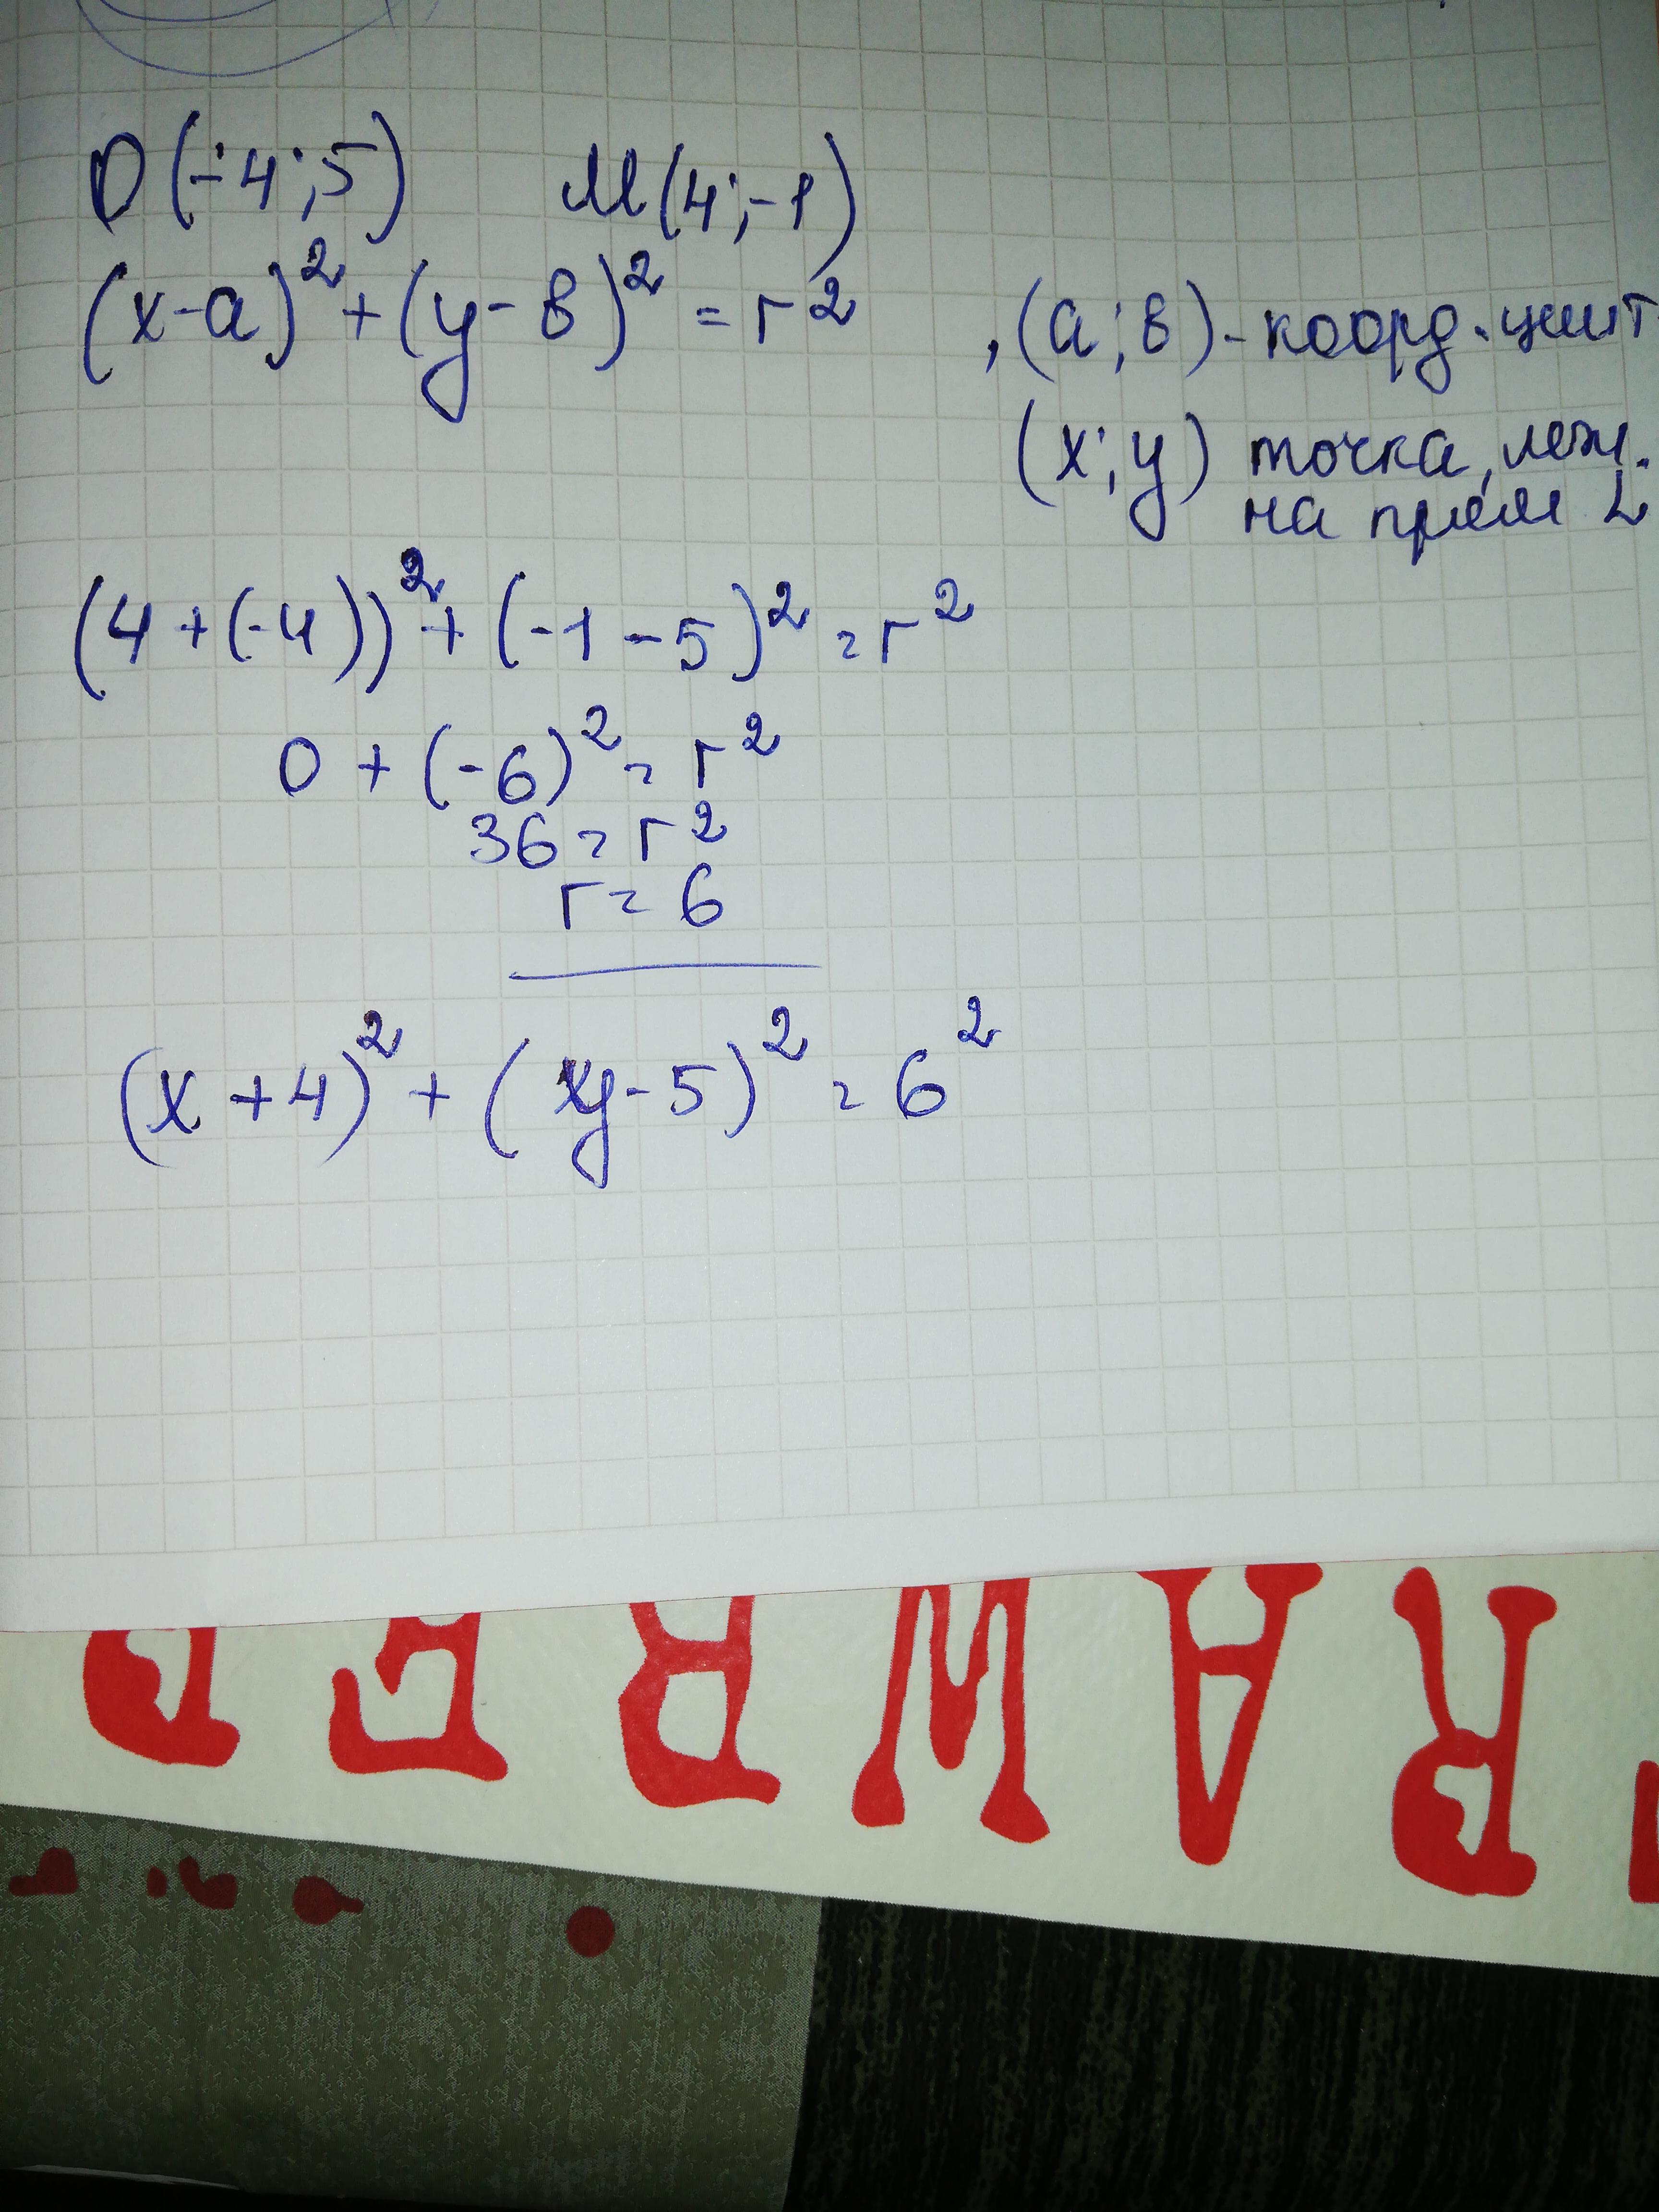 O(-4;5) М(4;-1)
(x-a)²+(y-в)²=r² , (a;в)-коорд. цент
(x;y) точка, леж.
на прям L
(4+(-4))²+(-1-5)²=r²
0+(-6)²=r²
36=r²
r=6
(x+4)²+(y-5)²=6²